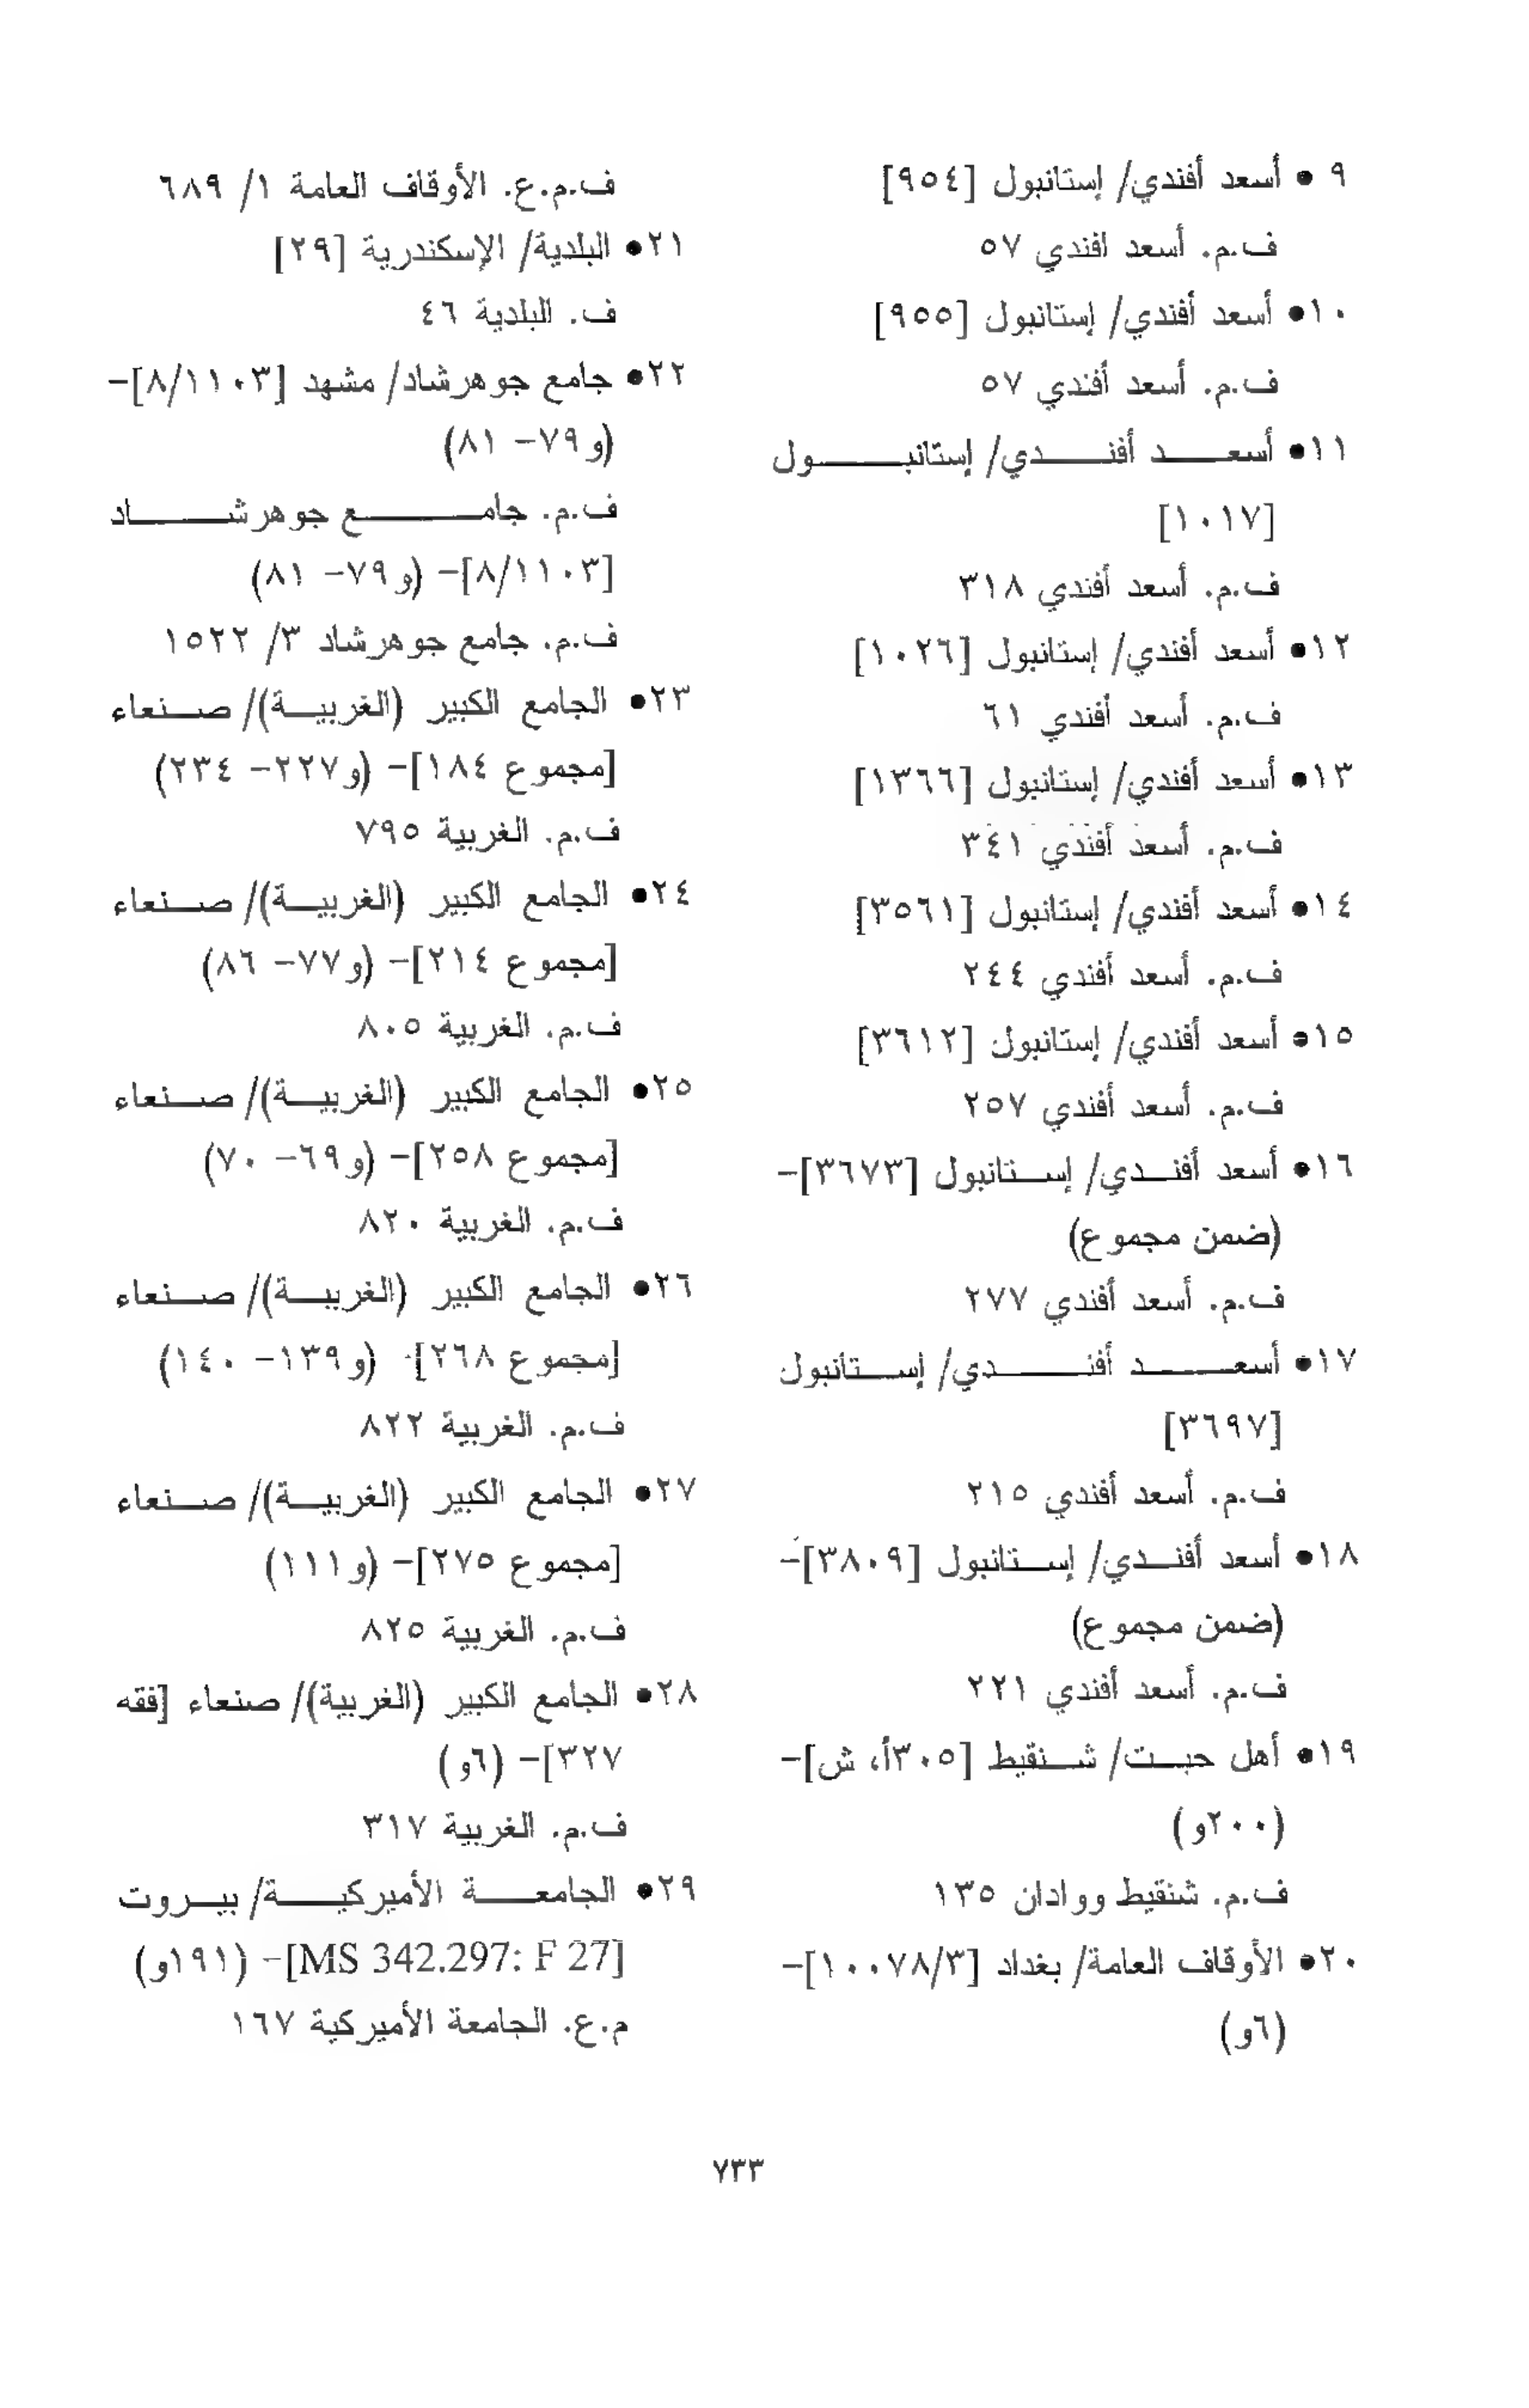 ٩ • أسعد أفندي/ إستانبول [٩٥٤]
ف.م. أسعد افندي ٥٧
١٠• أسعد أفندي/ إستانبول [٩٥٥]
ف.م. أسعد أفندي ٥٧
١١• أسعد أفندي/ إستانبول
[١٠١٧]
ف.م. أسعد أفندي ٣١٨
١٢• أسعد أفندي/ إستانبول [١٠٢٦]
ف.م. أسعد أفندي ٦١
١٣• أسعد أفندي/ إستانبول [١٣٦٦]
ف.م. أسعد أفندي ٣٤١
١٤• أسعد أفندي/ إستانبول [٣٥٦١]
ف.م. أسعد أفندي ٢٤٤
١٥• أسعد أفندي/ إستانبول [٣٦١٢]
ف.م. أسعد أفندي ٢٥٧
١٦• أسعد أفندي/ إستانبول [٣٦٧٣]-
(ضمن مجموع)
ف.م. أسعد أفندي ٢٧٧
١٧• أسعد أفندي/ إستانبول
[٣٦٩٧]
ف.م. أسعد أفندي ٢١٥
١٨• أسعد أفندي/ إستانبول [٣٨٠٩]-
(ضمن مجموع)
ف.م. أسعد أفندي ٢٢١
١٩• أهل حبت/ شنقيط [٣٠٥أ، ش]-
(٢٠٠و)
ف.م. شنقيط ووادان ١٣٥
٢٠• الأوقاف العامة/ بغداد [١٠٠٧٨/٣]-
(٦و)
ف.م.ع. الأوقاف العامة ١/ ٦٨٩
٢١• البلدية/ الإسكندرية [٢٩]
ف. البلدية ٤٦
٢٢• جامع جوهرشاد/ مشهد [٨/١١٠٣]-
(و٧٩- ٨١)
ف.م. جامع جوهرشاد
[٨/١١٠٣]- (و٧٩- ٨١)
ف.م. جامع جوهرشاد ٣/ ١٥٢٢
٢٣• الجامع الكبير (الغربية)/ صنعاء
[مجموع ١٨٤]- (و٢٢٧- ٢٣٤)
ف.م. الغربية ٧٩٥
٢٤• الجامع الكبير (الغربية)/ صنعاء
[مجموع ٢١٤]- (و٧٧- ٨٦)
ف.م. الغربية ٨٠٥
٢٥• الجامع الكبير (الغربية)/ صنعاء
[مجموع ٢٥٨]- (و٦٩- ٧٠)
ف.م. الغربية ٨٢٠
٢٦• الجامع الكبير (الغربية)/ صنعاء
[مجموع ٢٦٨]- (و١٣٩- ١٤٠)
ف.م. الغربية ٨٢٢
٢٧• الجامع الكبير (الغربية)/ صنعاء
[مجموع ٢٧٥]- (و١١١)
ف.م. الغربية ٨٢٥
٢٨• الجامع الكبير (الغربية)/ صنعاء [فقه
٣٢٧]- (٦و)
ف.م. الغربية ٣١٧
٢٩• الجامعة الأميركية/ بيروت
[MS 342.297: F 27]- (١٩١و)
م.ع. الجامعة الأميركية ١٦٧
٧٣٣